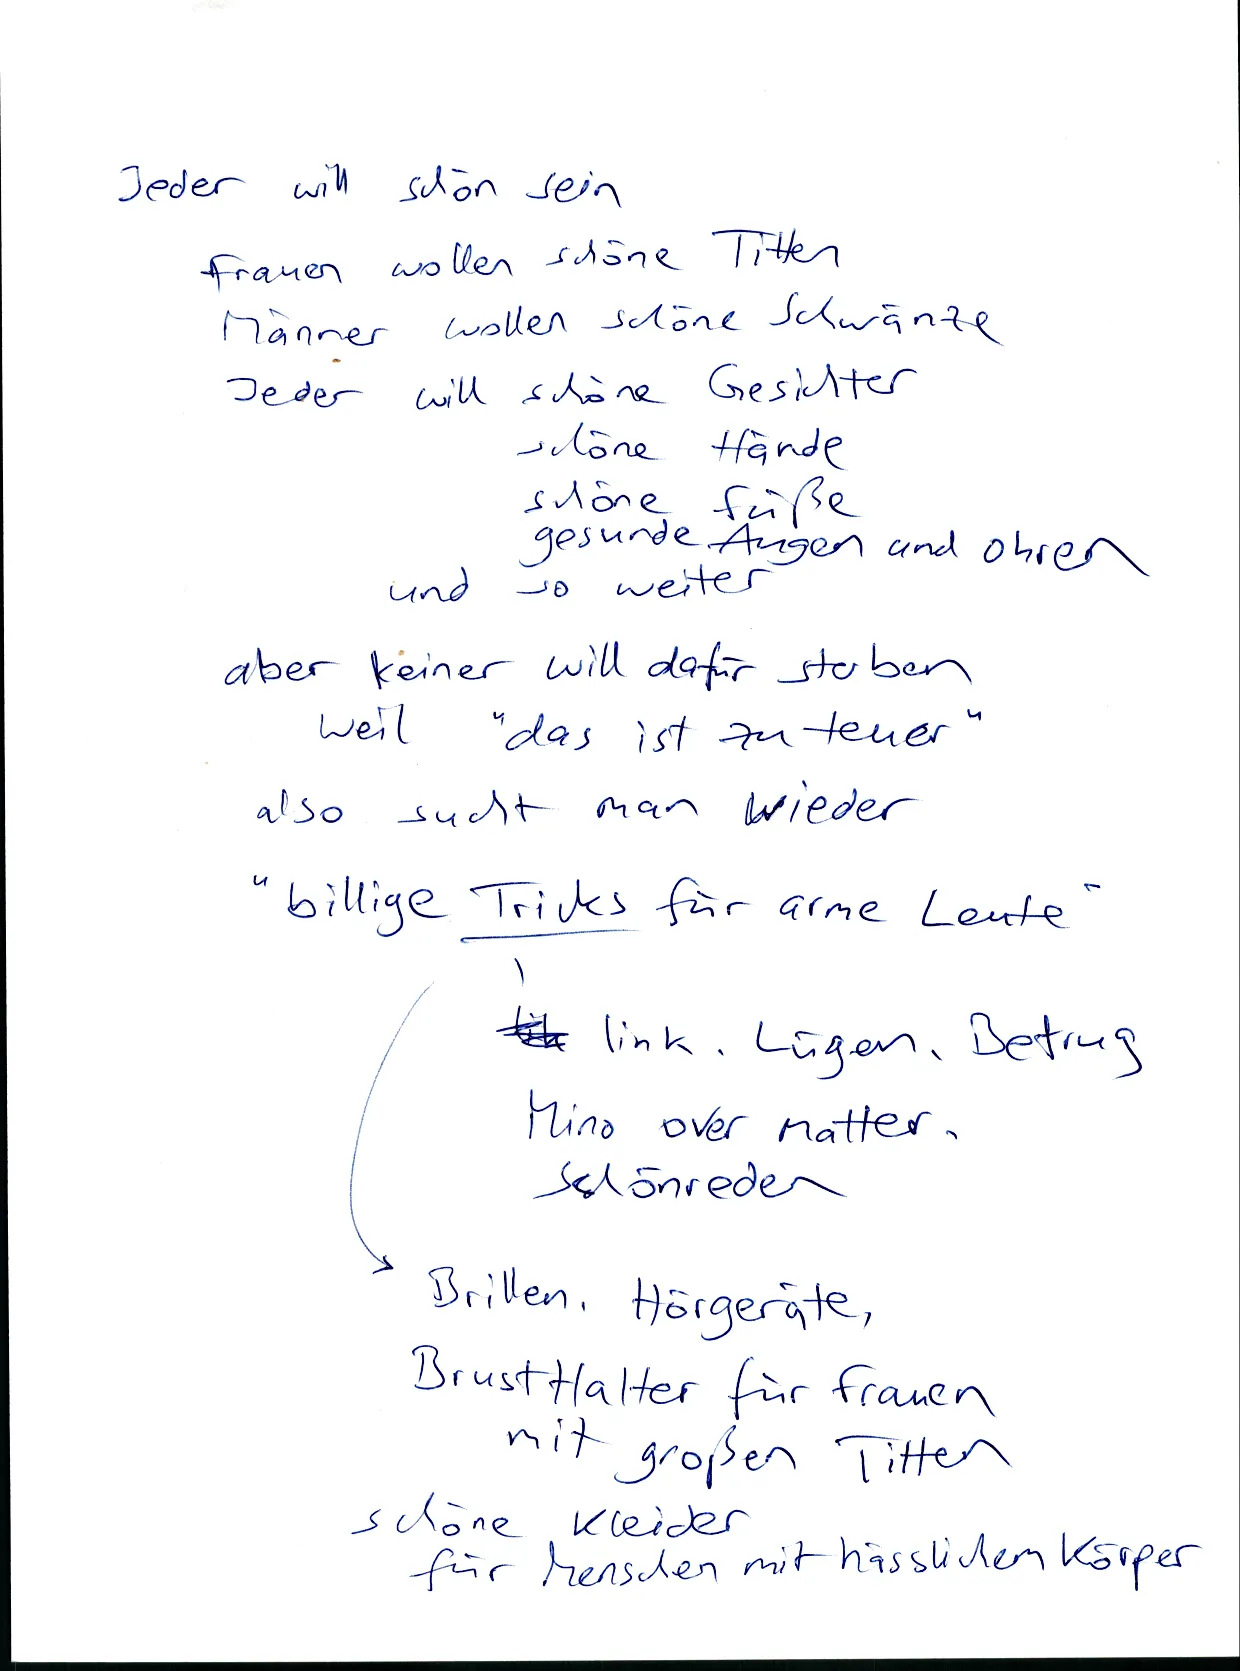 Jeder will schön sein
Frauen wollen schöne Titten
Männer wollen schöne Schwänze
Jeder will schöne Gesichter
schöne Hände
schöne Füße
gesunde Augen und ohren
und so weiter
aber keiner will dafür sterben
weil "das ist zu teuer"
also sucht man wieder
"billige Tricks für arme Leute"
link. Lügen. Betrug
Mind over matter.
Schönreden
Brillen. Hörgeräte,
BrustHalter für Frauen
mit großen Titten
schöne Kleider
für Menschen mit hässlichem Körper